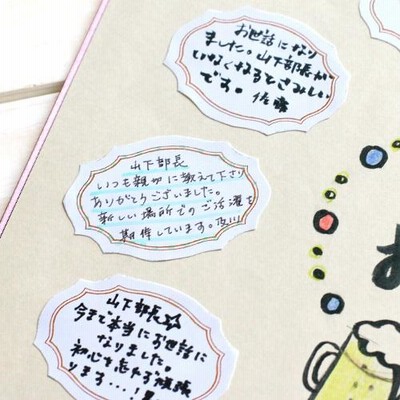 お世話になり
ました。山下部長が
いなくなるとさみしい
です。佐藤
山下部長
いつも親切に教えて下さり
ありがとうございました。
新しい場所でのご活躍を
期待しています。及川
お
山下部長☆
今まで本当にお世話に
なりました。
初心を忘れず頑張
ります…！